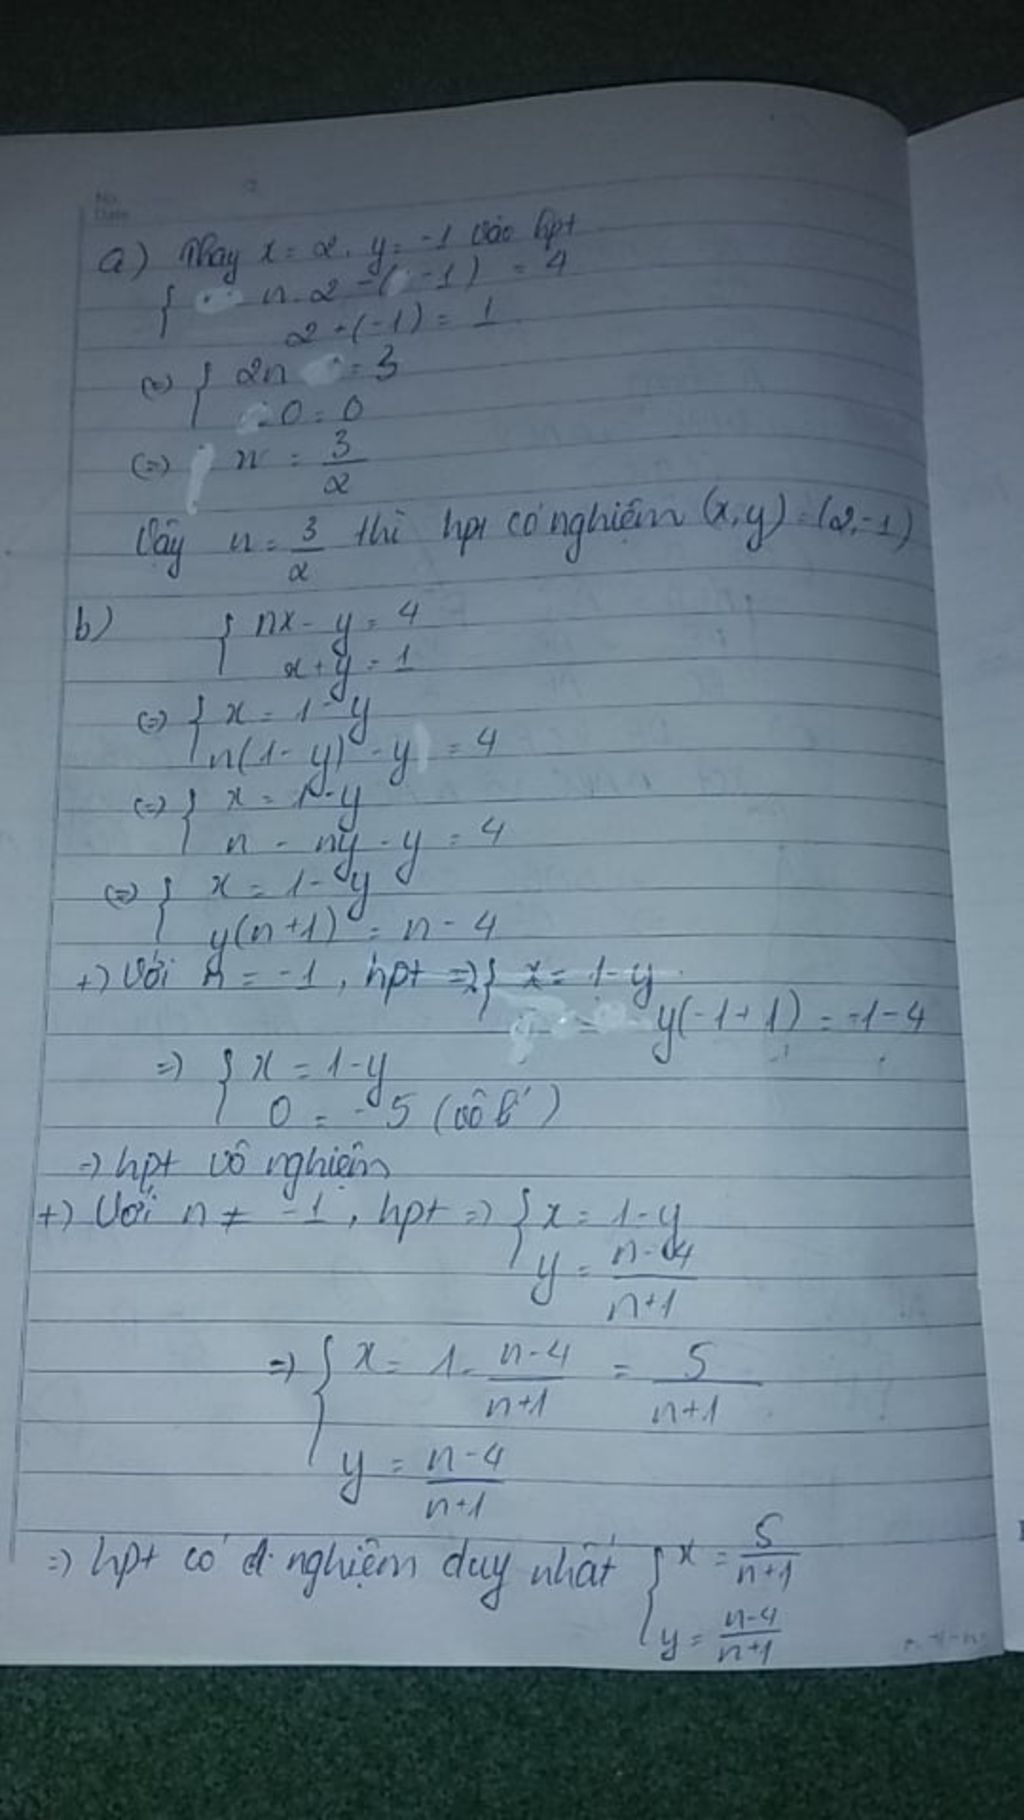 a) Thay x = 2, y = -1 vào hpt
{ n.2 - (-1) = 4
2 + (-1) = 1
(=) { 2n = 3
0 = 0
(=) n = 3/2
Vậy n = 3/2 thì hpt có nghiệm (x, y) = (2, -1)
b) { nx - y = 4
x + y = 1
(=) { x = 1 - y
n(1 - y) - y = 4
(=) { x = 1 - y
n - ny - y = 4
(=) { x = 1 - y
y(n+1) = n - 4
+) Với n = -1, hpt => { x = 1 - y
y(-1+1) = -1-4
=) { x = 1 - y
0 = -5 (vô lí)
=) hpt vô nghiệm
+) Với n ≠ -1, hpt =) { x = 1 - y
y = n-4/n+1
=) { x = 1 - n-4/n+1 = 5/n+1
y = n-4/n+1
=) hpt có nghiệm duy nhất { x = 5/n+1
y = n-4/n+1